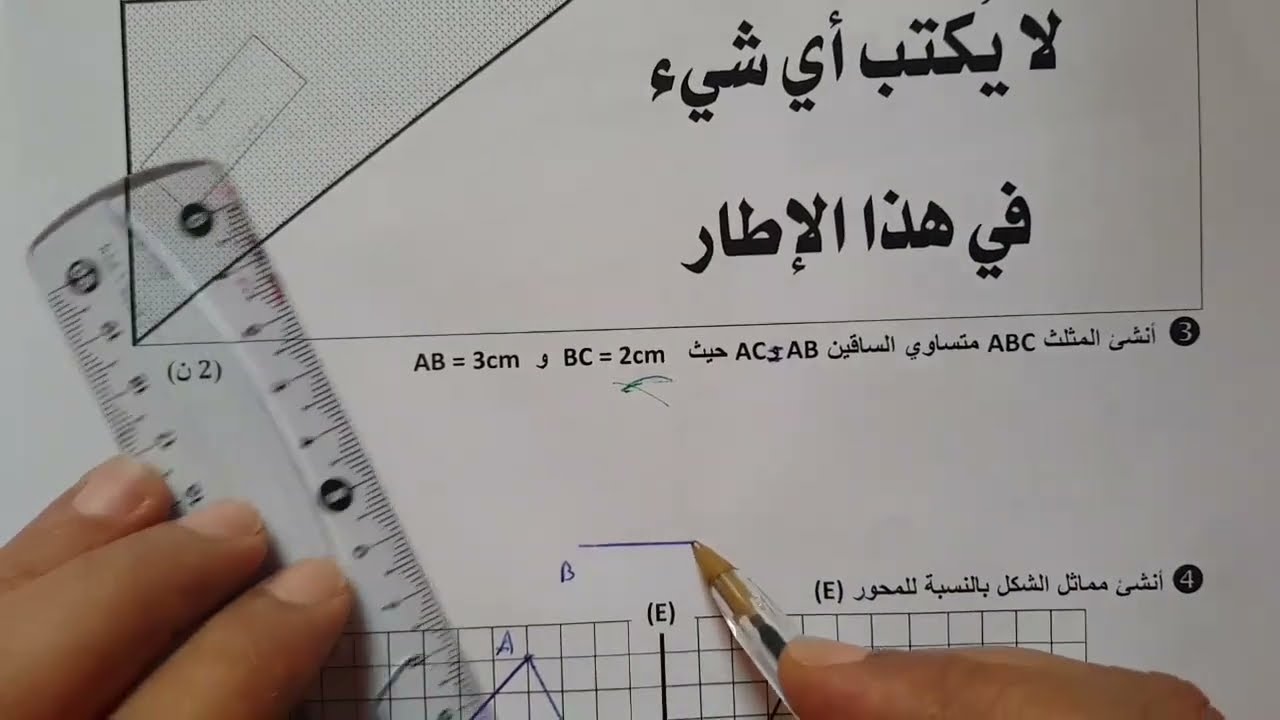 لا يُكتب أي شيء
في هذا الإطار
3 أنشئ المثلث ABC متساوي الساقين AB و AC حيث BC = 2cm و AB = 3cm
(2 ن)
B
4 أنشئ مماثل الشكل بالنسبة للمحور (E)
(E)
A